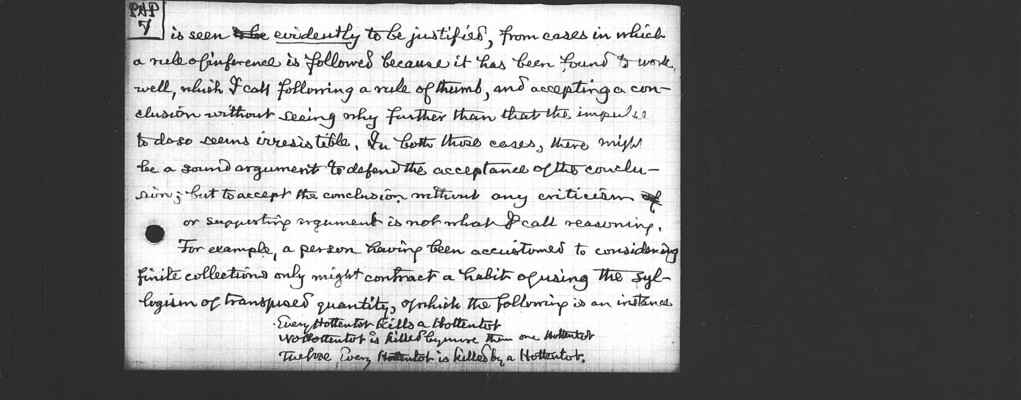 PAP
7
is seen to be evidently to be justified, from cases in which
a rule of inference is followed because it has been found to work
well, which I call following a rule of thumb, and accepting a con-
clusion without seeing why further than that the impulse
to do so seems irresistible. In both those cases, there might
be a sound argument to defend the acceptance of the conclu-
sion; but to accept the conclusion without any criticism of
or supporting argument is not what I call reasoning.
For example, a person having been accustomed to considering
finite collections only might contract a habit of using the syl-
logism of transposed quantity, of which the following is an instance
Every Hottentot kills a Hottentot
No Hottentot is killed by more than one Hottentot
Every Hottentot is killed by a Hottentot.